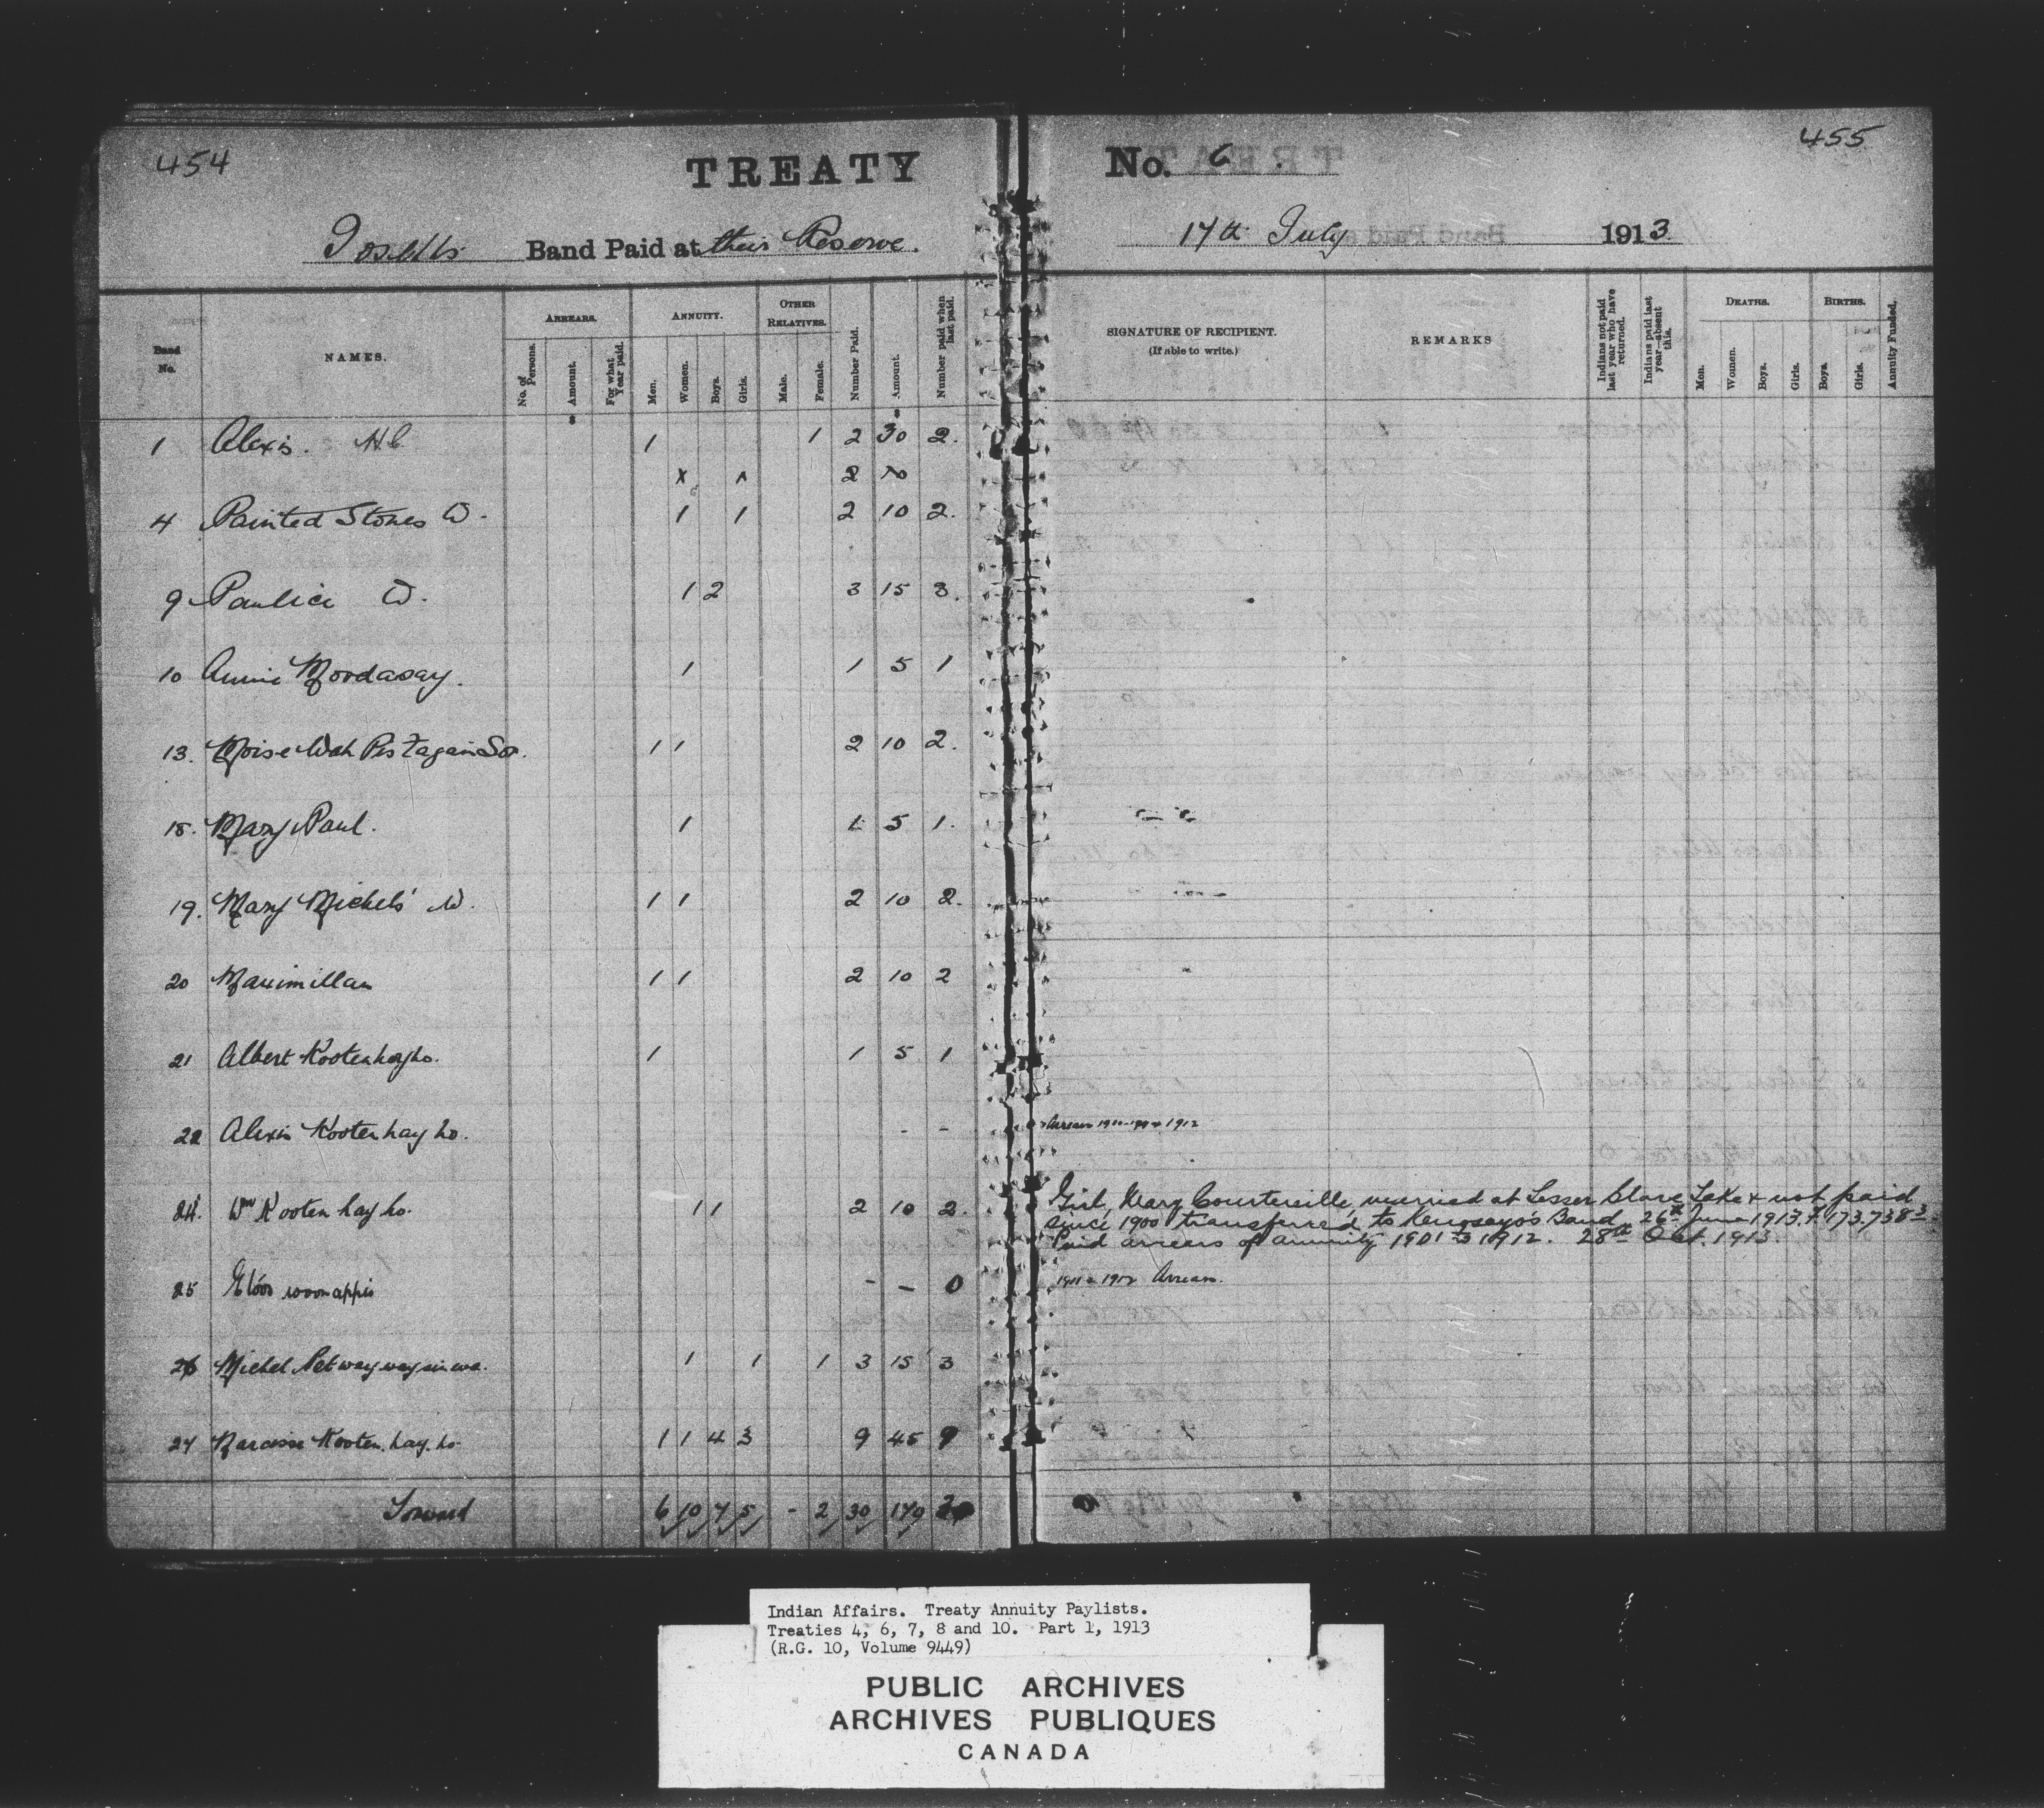 454
TREATY
Joseph's Band Paid at their Reserve.
Band No.
NAMES.
ARREARS.
No. of Persons.
Amount.
For what Year paid.
ANNUITY.
Men.
Women.
Boys.
Girls.
OTHER RELATIVES.
Male.
Female.
Number Paid.
Amount.
Number paid when last paid.
1 Alexis. HC 1 1 2 30 2.
x 2
4 Painted Stones W. 1 1 2 10 2.
9 W. 1 2 3 15 3.
10 Annie Moodasay. 1 1 5 1
13. Moise Wah 1 1 2 10 2.
18. Mary Paul. 1 1 5 1.
19. Mary Michels' W. 1 1 2 10 2.
20 Maximillan 1 1 2 10 2
21 Albert Kootenhayho. 1 1 5 1
22 Alexis Kootenhay ho. - -
24. Wm Kooten hay ho. 1 1 2 10 2.
25 - - 0
26 Michel 1 1 1 3 15 3
27 Narcisse Kooten. hay. ho. 1 1 4 3 9 45 9
Forward 6 10 7 5 - 2 30 170
455
No. 6
17th July 1913
SIGNATURE OF RECIPIENT.
(If able to write.)
REMARKS
Indians not paid last year who have returned.
Indians paid last year—absent this.
DEATHS.
Men.
Women.
Boys.
Girls.
BIRTHS.
Boys.
Girls.
Annuity Funded.
Arrears 1912
Girl, Mary Courtereille, married at Lesser Slave Lake & not paid
since 1900 transferred to Kenosayo's Band 26th June 1913.
Paid arrears of annuity 1901 to 1912. 28th Oct. 1913.
1911 & 1912 Arrears.
Indian Affairs. Treaty Annuity Paylists.
Treaties 4, 6, 7, 8 and 10. Part 1, 1913
(R.G. 10, Volume 9449)
PUBLIC ARCHIVES
ARCHIVES PUBLIQUES
CANADA